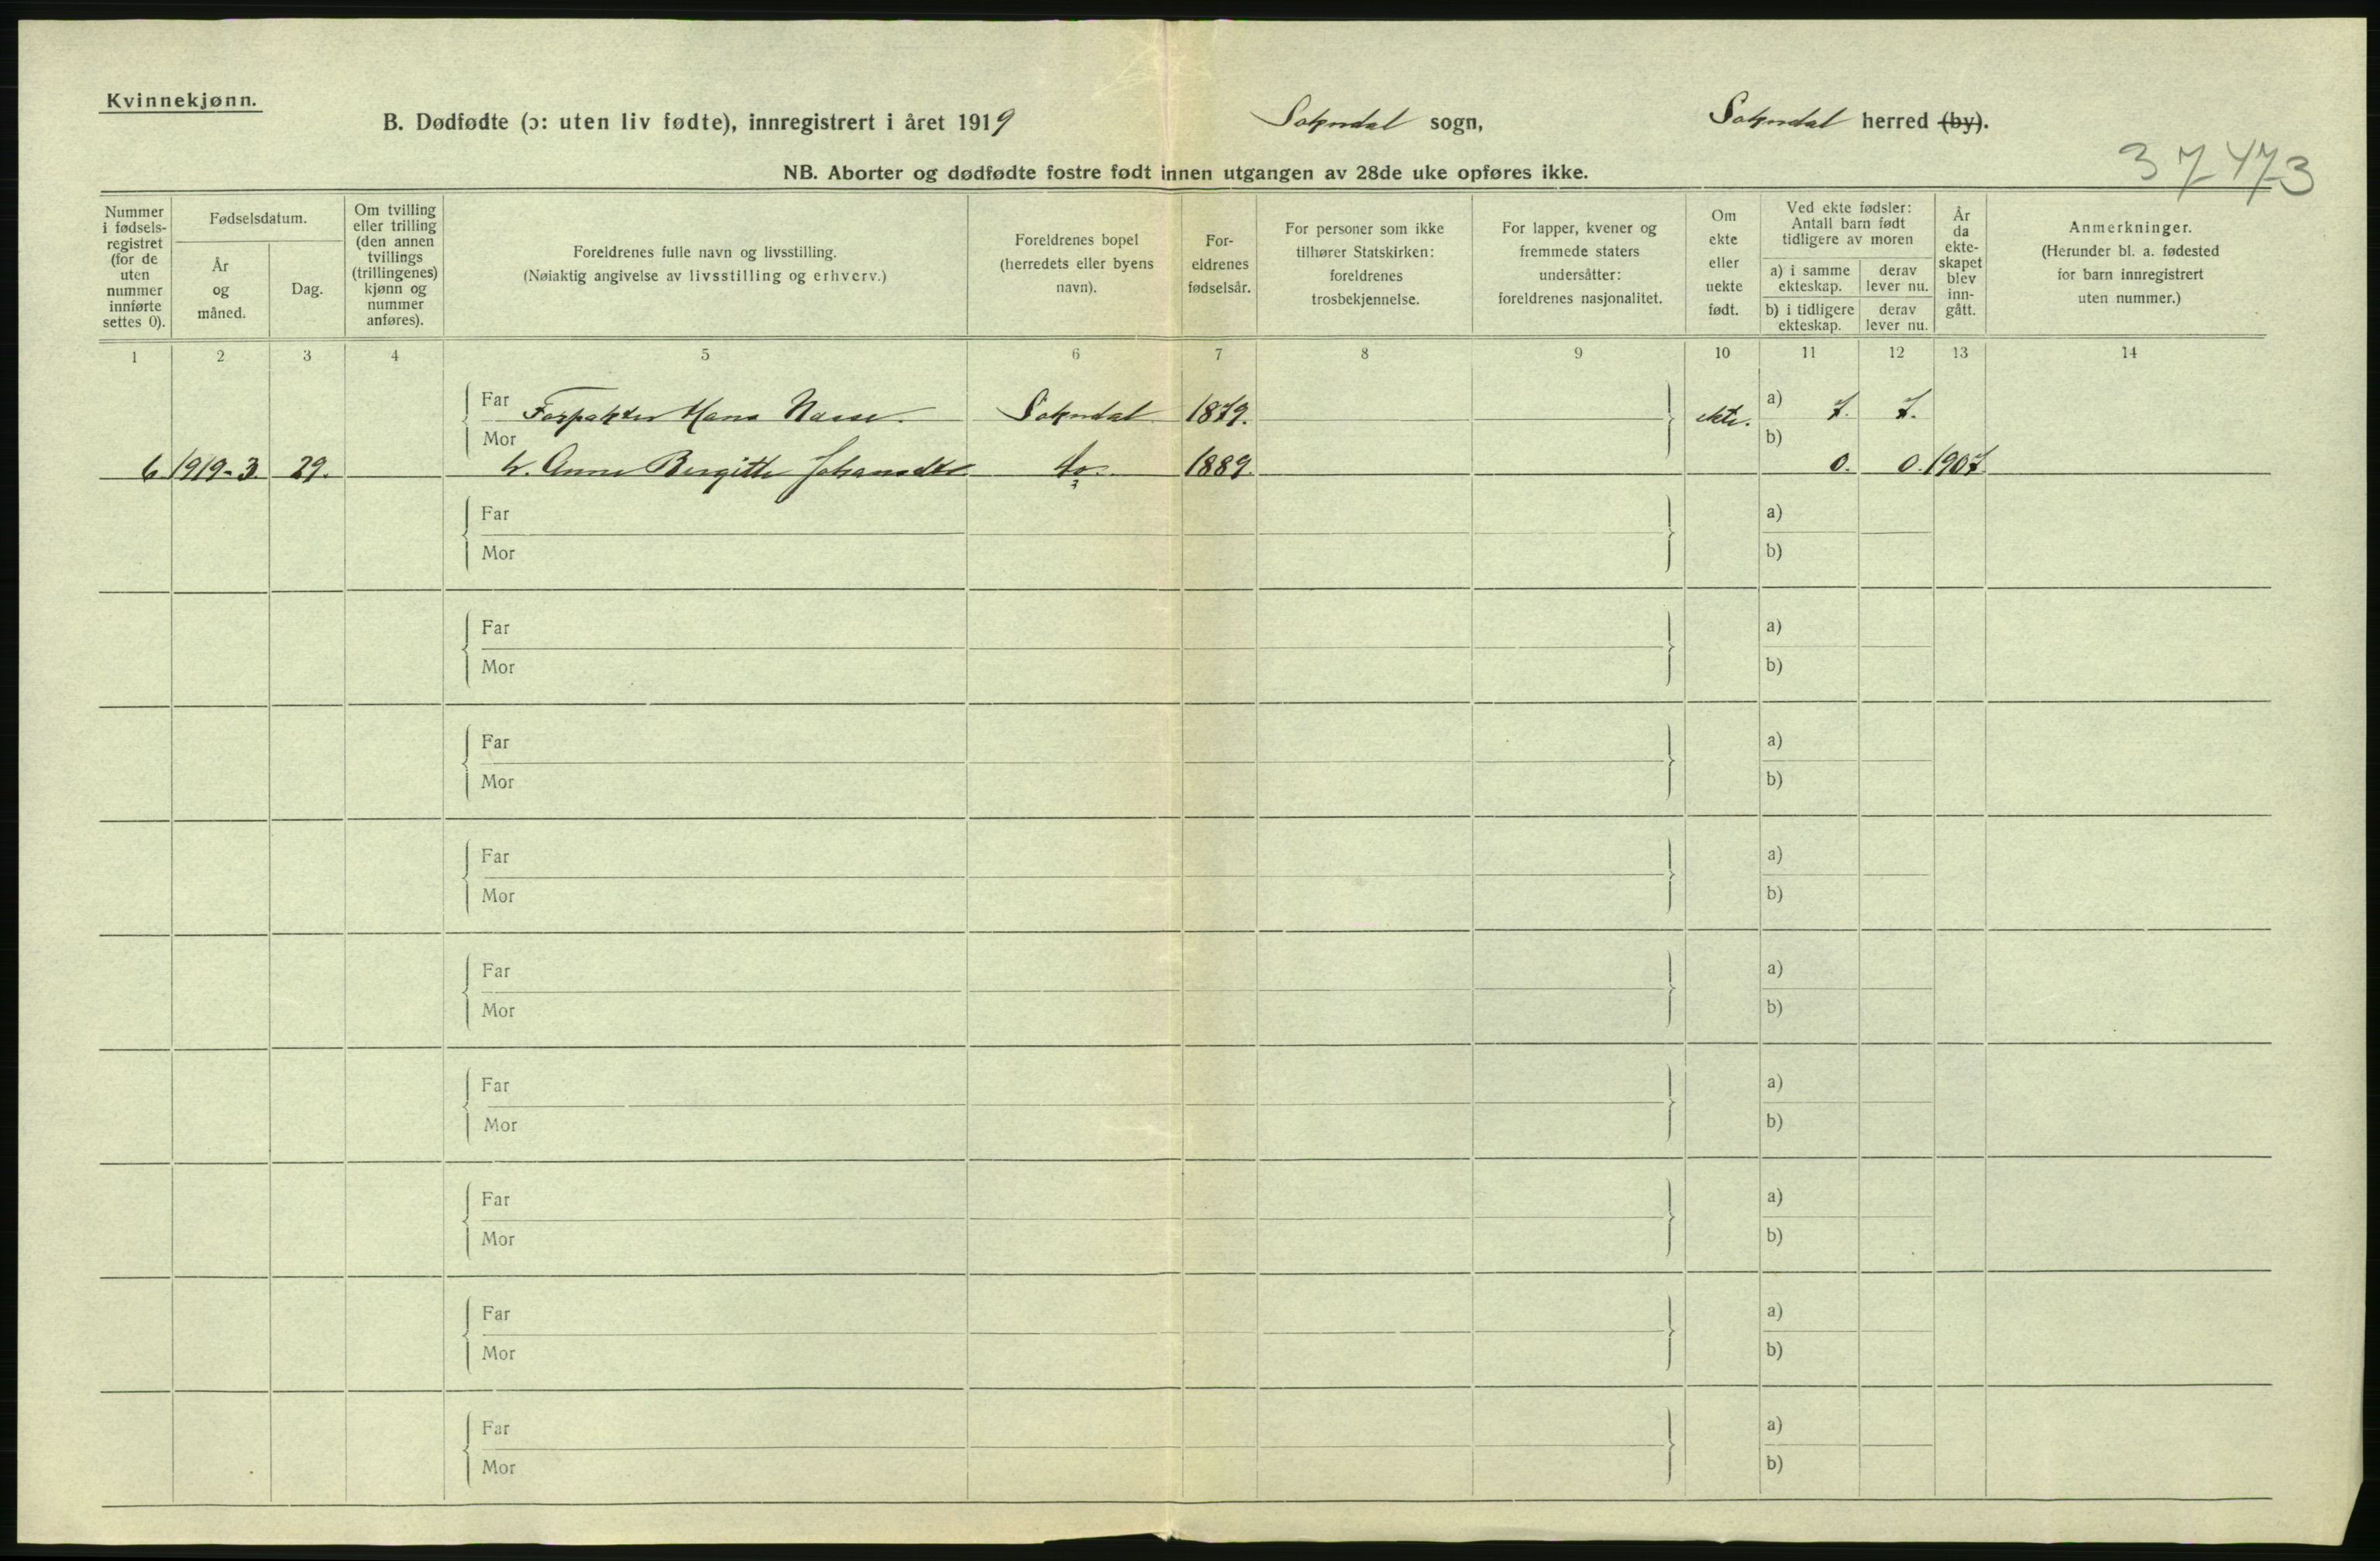 Kvinnekjønn.
B. Dødfødte (ɔ: uten liv fødte), innregistrert i året 1919 Sokndal sogn, Sokndal herred (by).
37473
NB. Aborter og dødfødte fostre født innen utgangen av 28de uke opføres ikke.
Nummer i fødsels-registret (for de uten nummer innførte settes 0).
Fødselsdatum.
År og måned.
Dag.
Om tvilling eller trilling (den annen tvillings (trillingenes) kjønn og nummer anføres).
Foreldrenes fulle navn og livsstilling.
(Nøiaktig angivelse av livsstilling og erhverv.)
Foreldrenes bopel (herredets eller byens navn).
For-eldrenes fødselsår.
For personer som ikke tilhører Statskirken: foreldrenes trosbekjennelse.
For lapper, kvener og fremmede staters undersåtter: foreldrenes nasjonalitet.
Om ekte eller uekte født.
Ved ekte fødsler: Antall barn født tidligere av moren
a) i samme ekteskap.
derav lever nu.
b) i tidligere ekteskap.
derav lever nu.
År da ekte-skapet blev inn-gått.
Anmerkninger.
(Herunder bl. a. fødested for barn innregistrert uten nummer.)
1 2 3 4 5 6 7 8 9 10 11 12 13 14
Far Forpakter Hans Sokndal 1879. ekte. a) 7. 7.
Mor b)
6. 1919-3. 29. h. Anne Bergitte Johansdtr. do. 1889. 0. 0. 1907.
Far a)
Mor b)
Far a)
Mor b)
Far a)
Mor b)
Far a)
Mor b)
Far a)
Mor b)
Far a)
Mor b)
Far a)
Mor b)
Far a)
Mor b)
Far a)
Mor b)